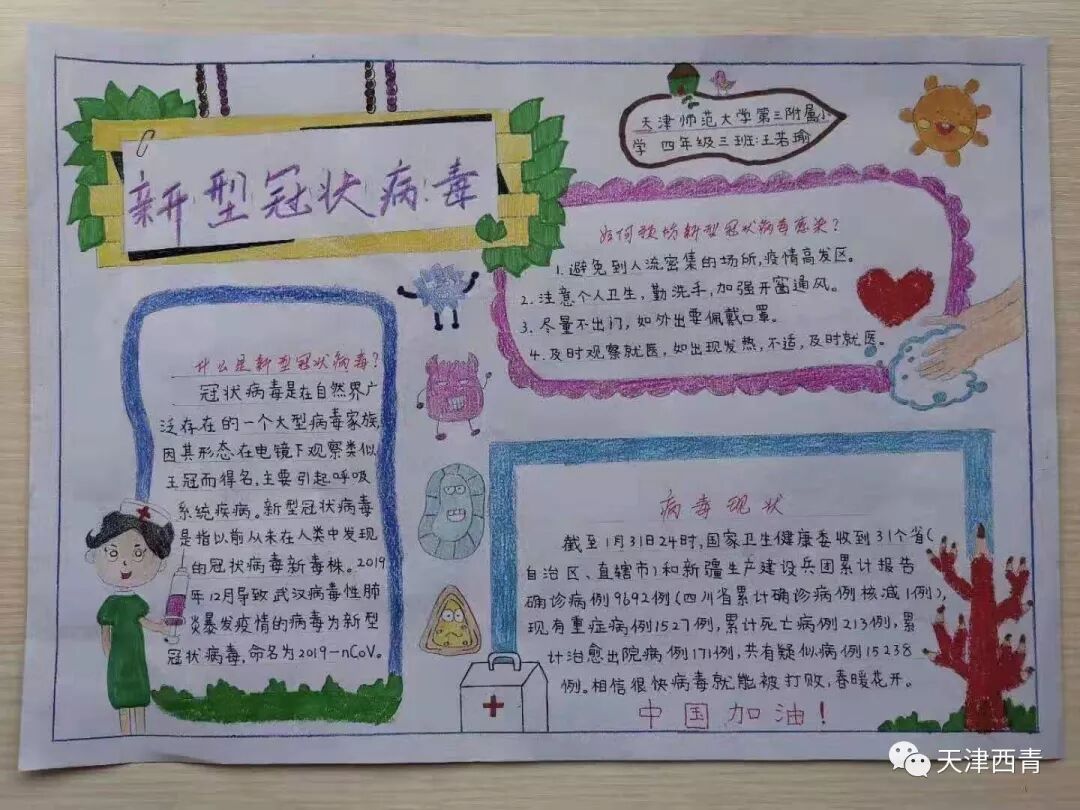 新型冠状病毒
天津师范大学第三附属小
学 四年级三班:王若瑜
如何预防新型冠状病毒感染?
1.避免到人流密集的场所,疫情高发区。
2.注意个人卫生,勤洗手,加强开窗通风。
3.尽量不出门,如外出要佩戴口罩。
4.及时观察就医,如出现发热,不适,及时就医。
什么是新型冠状病毒?
冠状病毒是在自然界广
泛存在的一个大型病毒家族,
因其形态在电镜下观察类似
王冠而得名,主要引起呼吸
系统疾病。新型冠状病毒
是指以前从未在人类中发现
的冠状病毒新毒株。2019
年12月导致武汉病毒性肺
炎暴发疫情的病毒为新型
冠状病毒,命名为2019-nCoV。
病毒现状
截至1月31日24时,国家卫生健康委收到31个省(
自治区、直辖市)和新疆生产建设兵团累计报告
确诊病例9692例(四川省累计确诊病例核减1例),
现有重症病例1527例,累计死亡病例213例,累
计治愈出院病例171例,共有疑似病例15238
例。相信很快病毒就能被打败,春暖花开。
中国加油!
天津西青